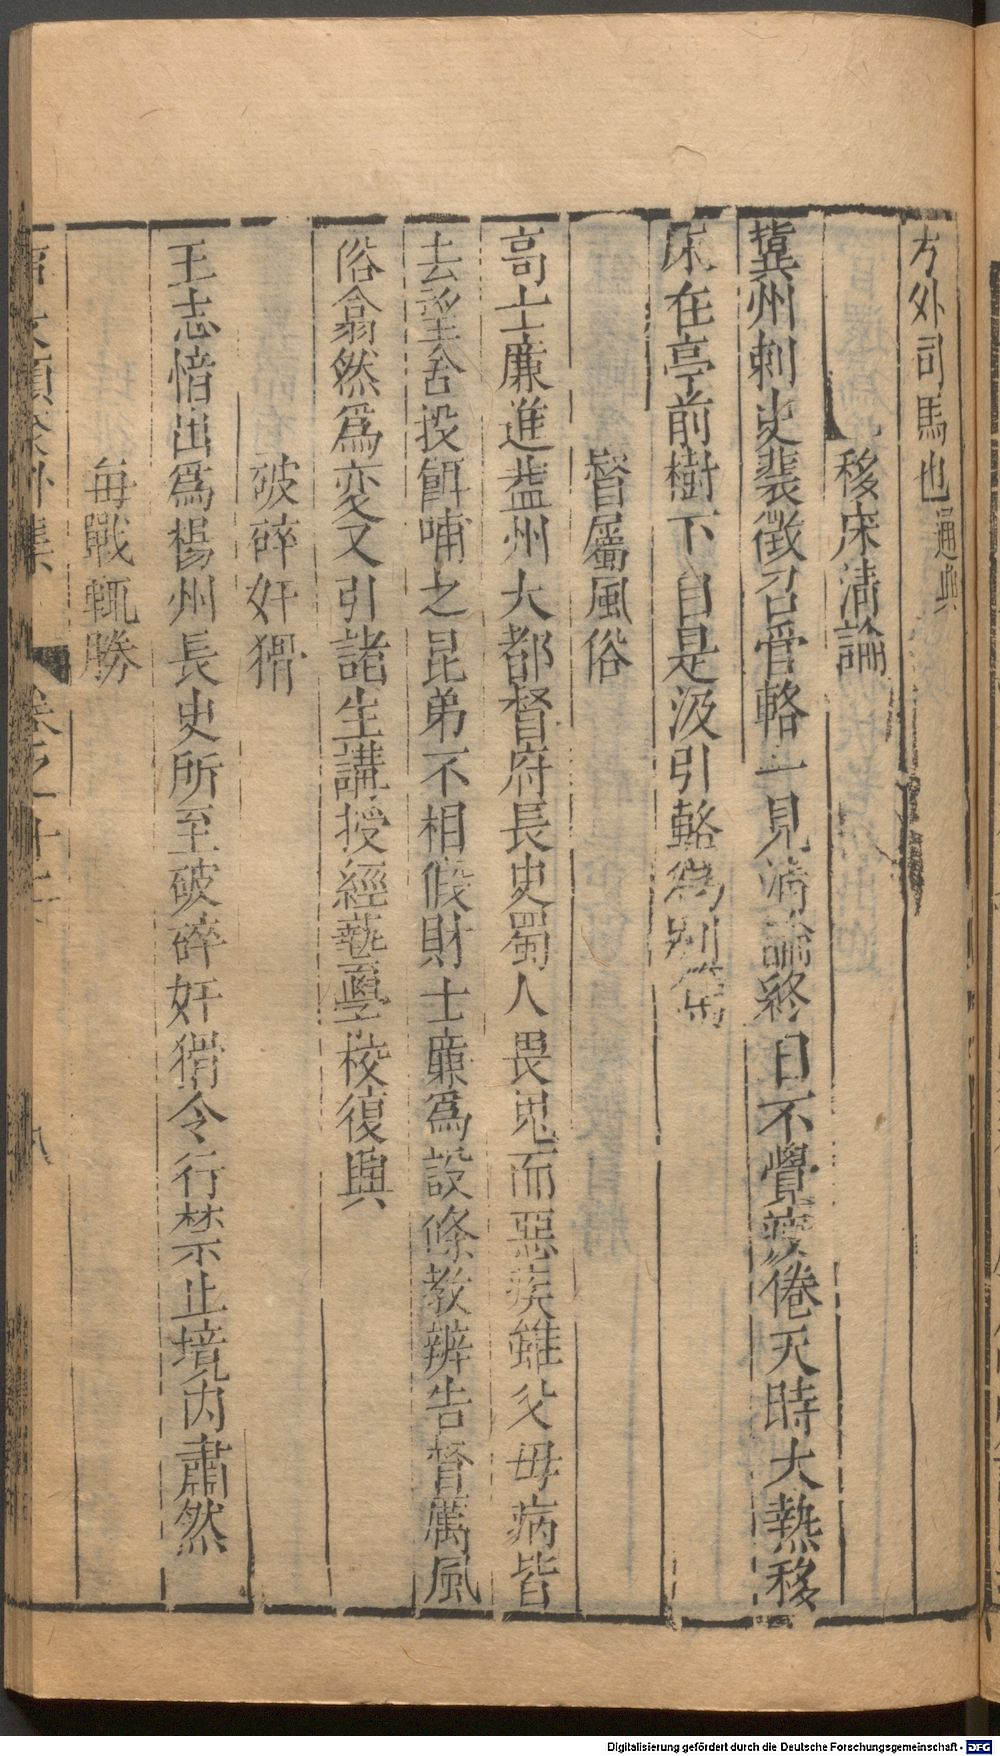 方外司馬也通典
移床清論
冀州刺史裴徵召管輅一見清論終日不覺疲倦天時大熱移
床在亭前樹下自是汲引輅為別駕
督屬風俗
高士廉進益州大都督府長史蜀人畏鬼而惡疾雖父母病皆
去望舍投餌哺之昆弟不相假財士廉爲設條教辨告督厲風
俗翕然爲変又引諸生講授經藝學校復興
破碎奸猾
王志愔出爲楊州長史所至破碎奸猾令行禁止境内肅然
每戰輒勝
卷之十
八
Digitalisierung gefördert durch die Deutsche Forschungsgemeinschaft - DFG